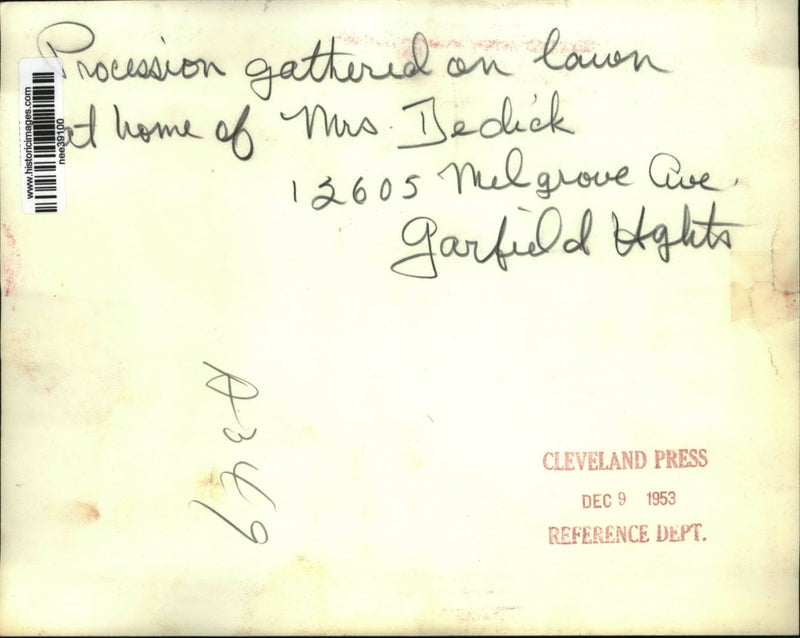 Procession gathered on lawn
at home of Mrs. Dedick
12605 Melgrove Ave.
Garfield Hghts
www.historicimages.com
nee39100
CLEVELAND PRESS
DEC 9 1953
REFERENCE DEPT.